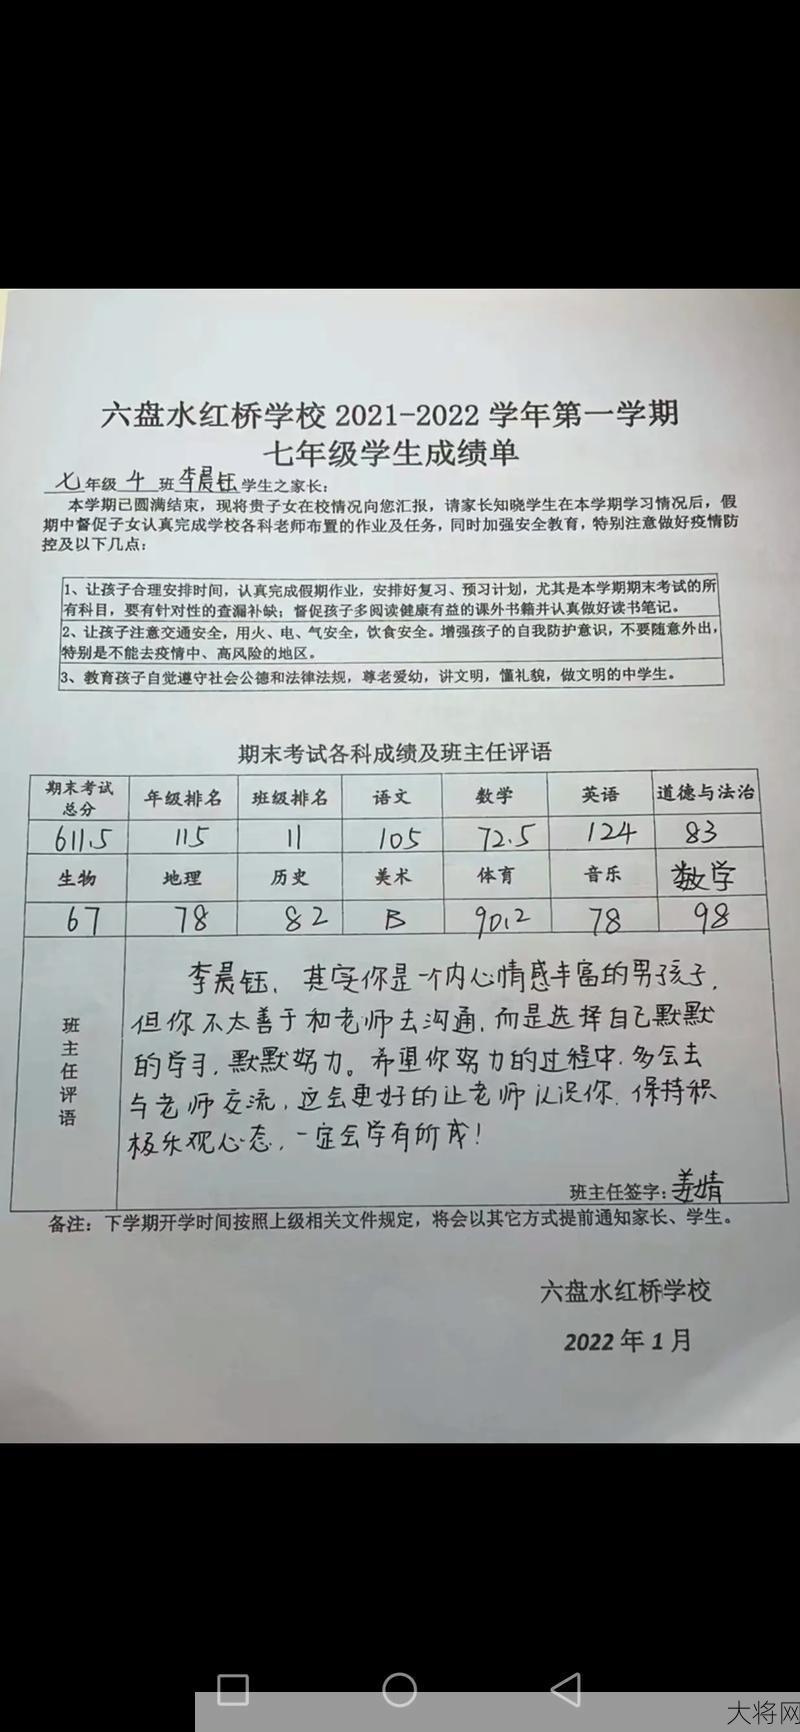 六盘水红桥学校 2021-2022 学年第一学期
七年级学生成绩单
七年级 4 班 李晨钰 学生之家长：
本学期已圆满结束，现将贵子女在校情况向您汇报，请家长知晓学生在本学期学习情况后，假
期中督促子女认真完成学校各科老师布置的作业及任务，同时加强安全教育，特别注意做好疫情防
控及以下几点：
1、让孩子合理安排时间，认真完成假期作业，安排好复习、预习计划，尤其是本学期期末考试的所
有科目，要有针对性的查漏补缺；督促孩子多阅读健康有益的课外书籍并认真做好读书笔记。
2、让孩子注意交通安全，用火、电、气安全，饮食安全。增强孩子的自我防护意识，不要随意外出，
特别是不能去疫情中、高风险的地区。
3、教育孩子自觉遵守社会公德和法律法规，尊老爱幼，讲文明，懂礼貌，做文明的中学生。
期末考试各科成绩及班主任评语
期末考试总分 年级排名 班级排名 语文 数学 英语 道德与法治
611.5 115 11 105 72.5 124 83
生物 地理 历史 美术 体育 音乐 数学
67 78 82 B 90.2 78 98
班主任评语
李晨钰，其实你是一个内心情感丰富的男孩子，
但你不太善于和老师去沟通，而是选择自己默默
的学习，默默努力。希望你努力的过程中，多会去
与老师交流，这会更好的让老师认识你，保持积
极乐观心态，一定会学有所成！
班主任签字：姜婧
备注：下学期开学时间按照上级相关文件规定，将会以其它方式提前通知家长、学生。
六盘水红桥学校
2022 年 1 月
大将网